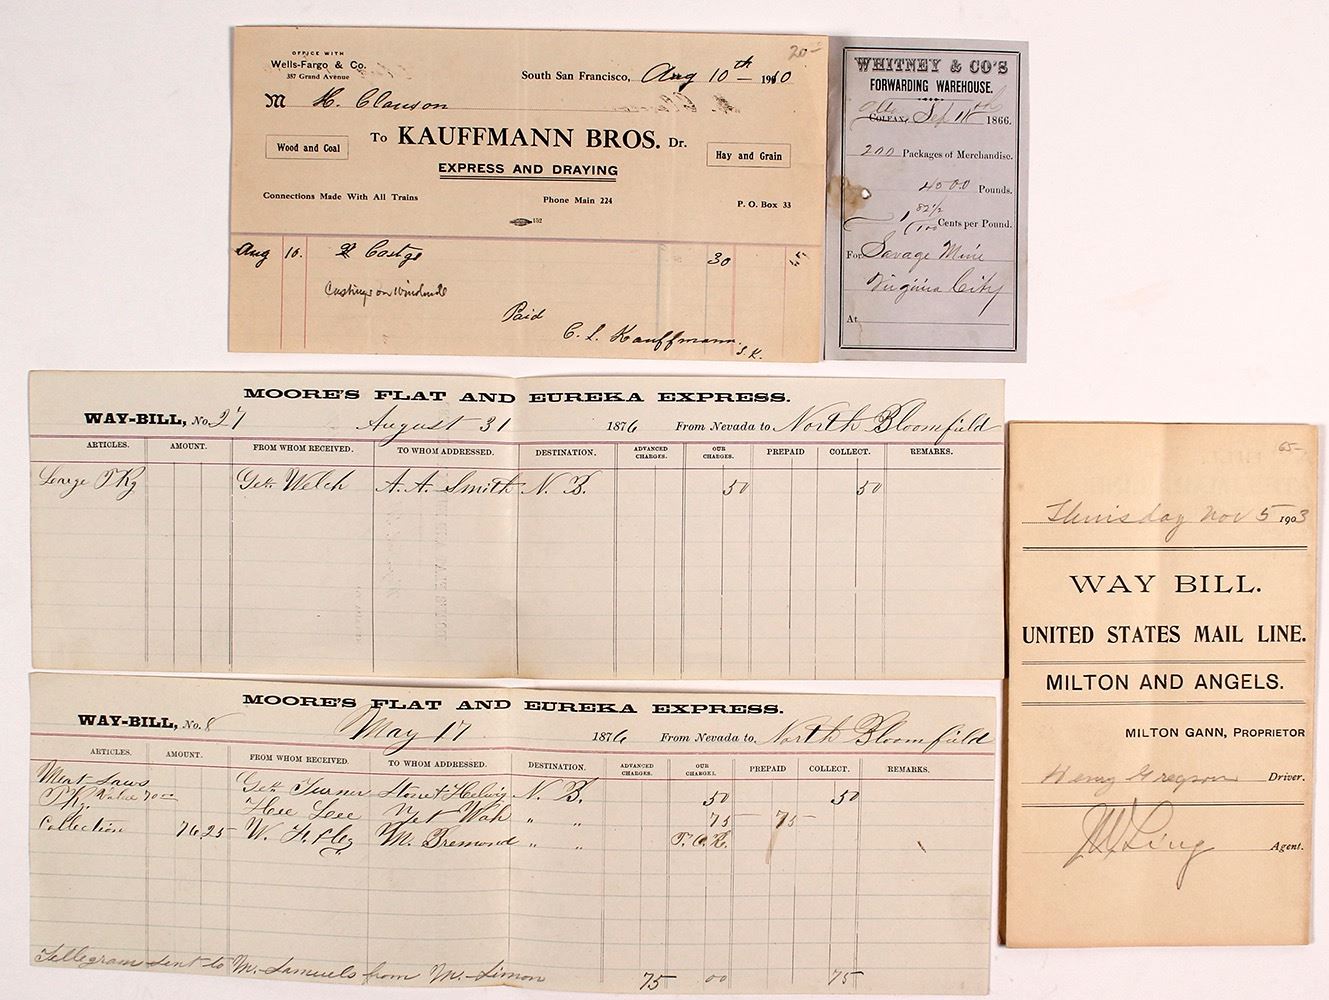 OFFICE WITH
Wells-Fargo & Co.
387 Grand Avenue
20
South San Francisco, Aug 10th 1910
M H. Clawson
To KAUFFMANN BROS. Dr.
Wood and Coal
Hay and Grain
EXPRESS AND DRAYING
Connections Made With All Trains
Phone Main 224
P. O. Box 33
152
Aug 10. Castgs 30
Castings on windmill
Paid
C. L. Kauffmann
S.K.
WHITNEY & CO'S
FORWARDING WAREHOUSE.
COLFAX, Sep 11th 1866.
200 Packages of Merchandise.
4500 Pounds.
1 82½/100 Cents per Pound.
For Savage Mine
Virginia City
At
MOORE'S FLAT AND EUREKA EXPRESS.
WAY-BILL, No. 27 August 31 1876 From Nevada to North Bloomfield
ARTICLES. AMOUNT. FROM WHOM RECEIVED. TO WHOM ADDRESSED. DESTINATION. ADVANCED CHARGES. OUR CHARGES. PREPAID COLLECT. REMARKS.
Large Pkg Geo. Welch A. A. Smith N. B. 50 50
MOORE'S FLAT AND EUREKA EXPRESS.
WAY-BILL, No. 8 May 17 1876 From Nevada to North Bloomfield
ARTICLES. AMOUNT. FROM WHOM RECEIVED. TO WHOM ADDRESSED. DESTINATION. ADVANCED CHARGES. OUR CHARGES. PREPAID COLLECT. REMARKS.
Turner N. B. 50 50
Pkg. Value 70 Hee Lee Yet Wah " " 75 75
Collection 7625 W. F. & Co M. Bremond " "
Tellegram sent to M. Samuels from M. Simon 75 00 75
65-
Thursday Nov 5 1903
WAY BILL.
UNITED STATES MAIL LINE.
MILTON AND ANGELS.
MILTON GANN, PROPRIETOR
Henry Gregson Driver.
Agent.